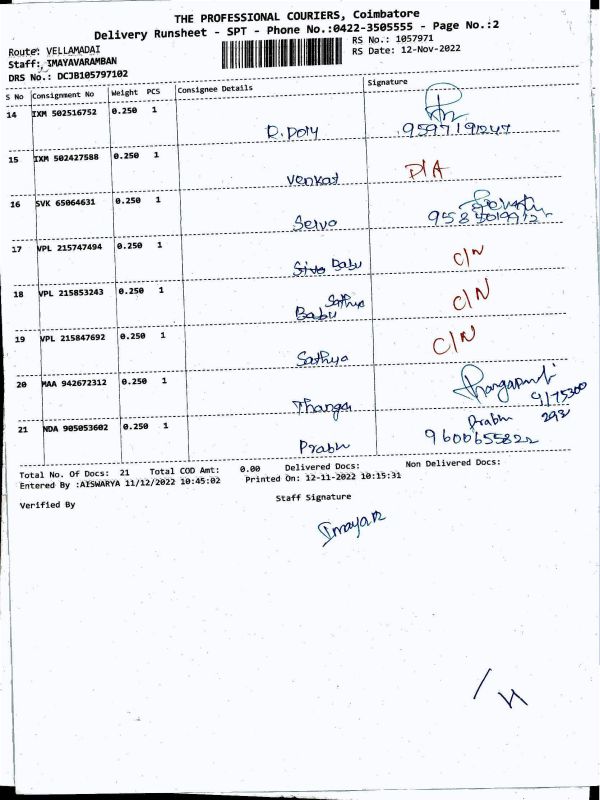 THE PROFESSIONAL COURIERS, Coimbatore
Delivery Runsheet - SPT - Phone No.:0422-3505555 - Page No.:2
Route: VELLAMADAI
RS No.: 1057971
Staff: IMAYAVARAMBAN
RS Date: 12-Nov-2022
DRS No.: DCJB105797102
S No Consignment No Weight PCS Consignee Details Signature
14 IXM 502516752 0.250 1
9597191247
15 IXM 502427588 0.250 1
Venkat D/A
16 SVK 65064631 0.250 1
Selva
17 VPL 215747494 0.250 1
Siva Babu C/N
18 VPL 215853243 0.250 1
Sathya
Babu C/N
19 VPL 215847692 0.250 1
Sathya C/N
20 MAA 942672312 0.250 1
Thanga
21 NDA 905053602 0.250 1
Prabhu
Prabhu 9600655822
Total No. Of Docs: 21 Total COD Amt: 0.00 Delivered Docs: Non Delivered Docs:
Entered By :AISWARYA 11/12/2022 10:45:02 Printed On: 12-11-2022 10:15:31
Verified By
Staff Signature